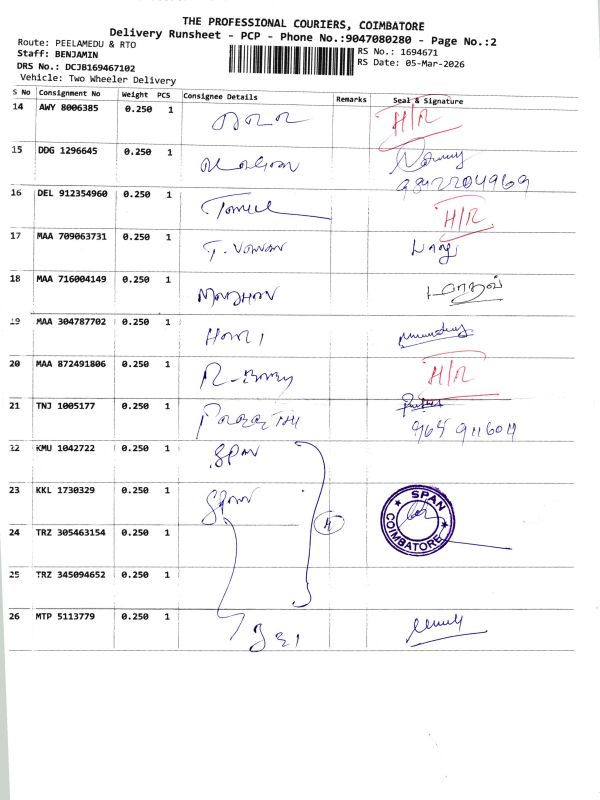 THE PROFESSIONAL COURIERS, COIMBATORE
Delivery Runsheet - PCP - Phone No.:9047080280 - Page No.:2
Route: PEELAMEDU & RTO
Staff: BENJAMIN
DRS No.: DCJB169467102
Vehicle: Two Wheeler Delivery
RS No.: 1694671
RS Date: 05-Mar-2026
S No Consignment No Weight PCS Consignee Details Remarks Seal & Signature
14 AWY 8006385 0.250 1 H/R
15 DDG 1296645 0.250 1
16 DEL 912354960 0.250 1 H/R
17 MAA 709063731 0.250 1
18 MAA 716004149 0.250 1 மாதவ்
19 MAA 304787702 0.250 1 Hari
20 MAA 872491806 0.250 1 H/R
21 TNJ 1005177 0.250 1
22 KMU 1042722 0.250 1 SPAN
23 KKL 1730329 0.250 1 SPAN 4 SPAN COIMBATORE
24 TRZ 305463154 0.250 1
25 TRZ 345094652 0.250 1
26 MTP 5113779 0.250 1